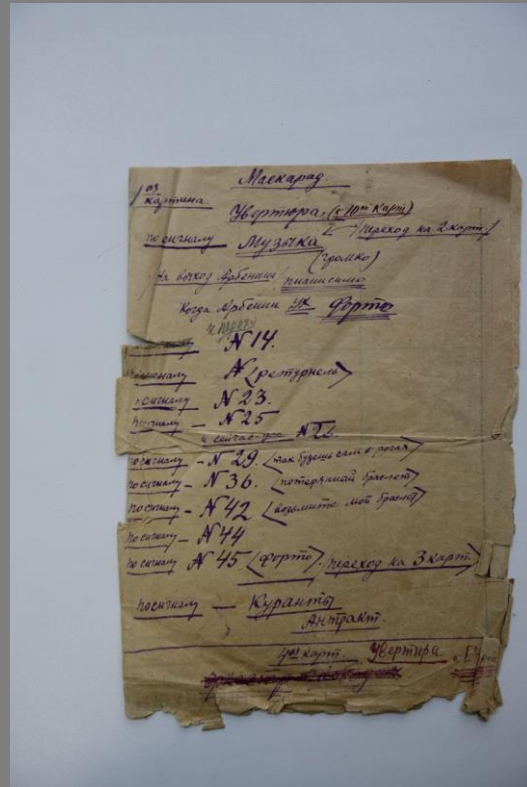 Маскарад.
1ая картина
Увертюра,
(переход на 2 карт.)
по сигналу Музыка (громко)
На выход Арбенина пианисимо
Когда Арбенин Форто
N 14.
по сигналу N (ретурнель)
по сигналу N 23.
по сигналу - N 25
и сейчас-же N 26.
по сигналу - N 29. (так будешь сам о рогах)
по сигналу - N 36. (потерянный браслет)
по сигналу - N 42 (возьмите мой браслет)
по сигналу - N 44
по сигналу N 45 (форто). переход на 3 карт.
по сигналу — Куранты
Антракт.
4ая карт. Увертюра